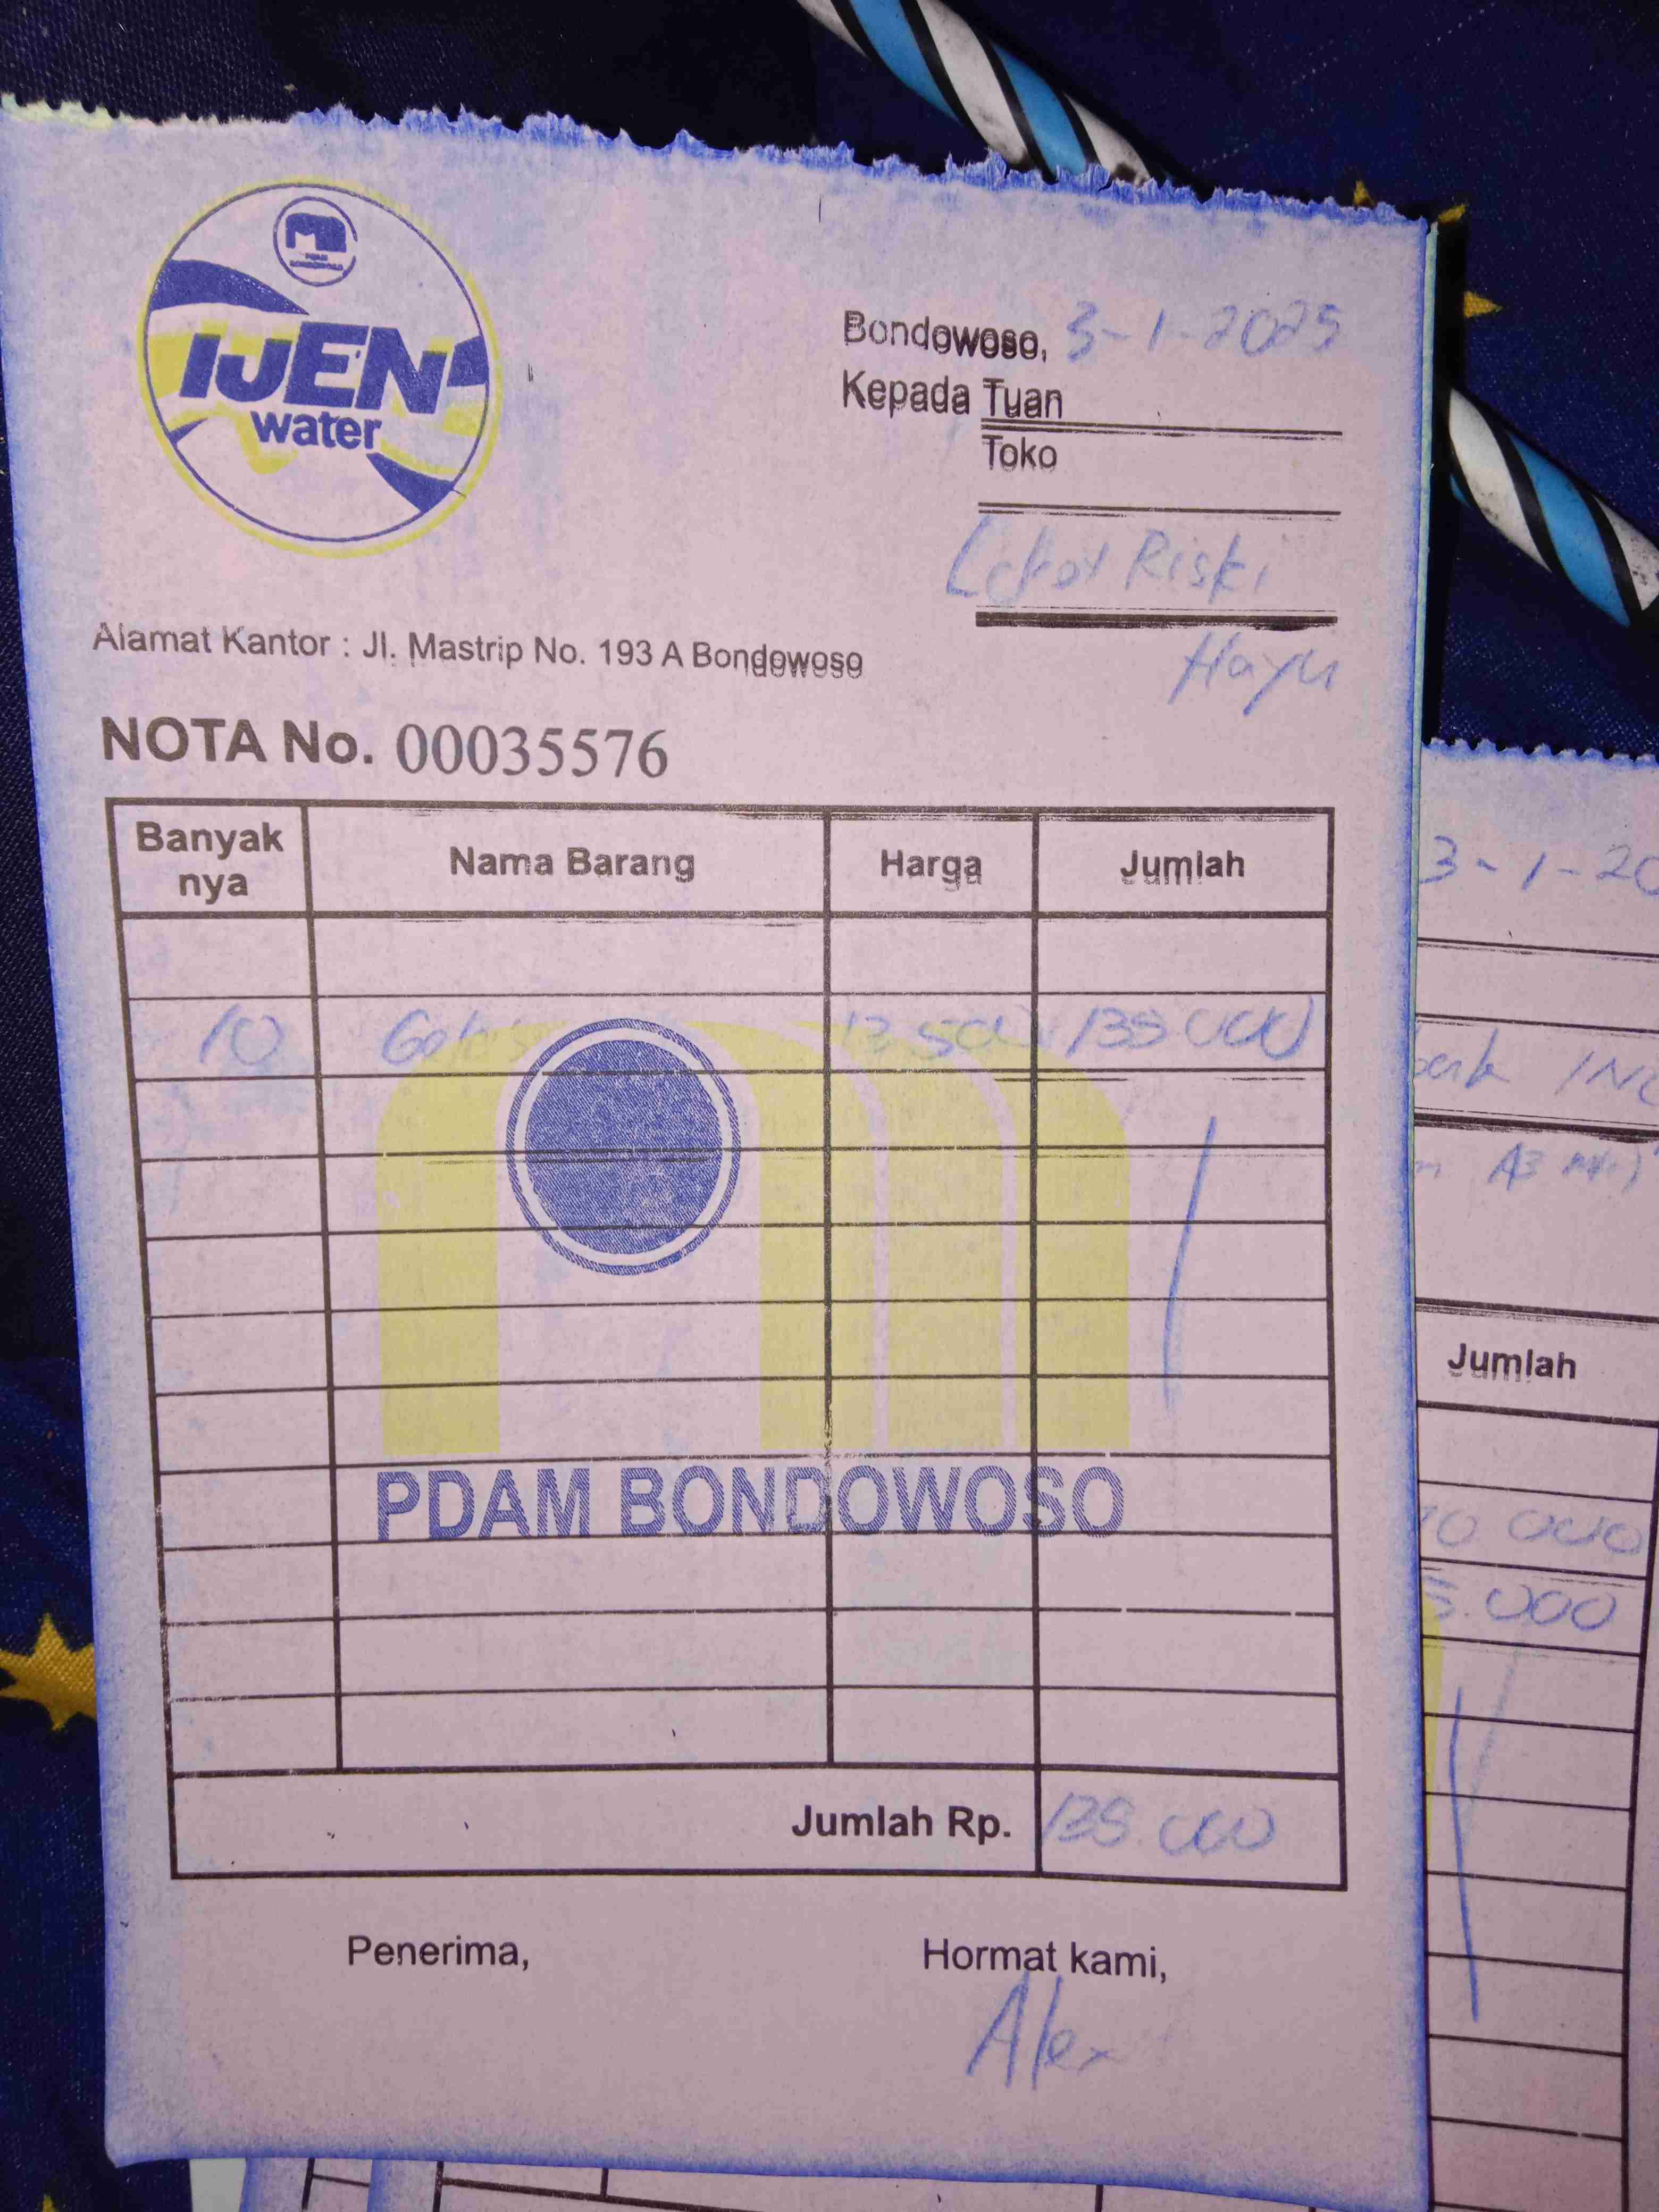 IJEN
water
Bondowoso, 3-1-2025
Kepada Tuan
Toko
Riski
Hayu
Alamat Kantor : Jl. Mastrip No. 193 A Bondowoso
NOTA No. 00035576
Banyak nya Nama Barang Harga Jumlah
10 13 500 135 000
PDAM BONDOWOSO
Jumlah Rp. 135.000
Penerima, Hormat kami,
Alex
3-1-20
Jumlah
000
5.000